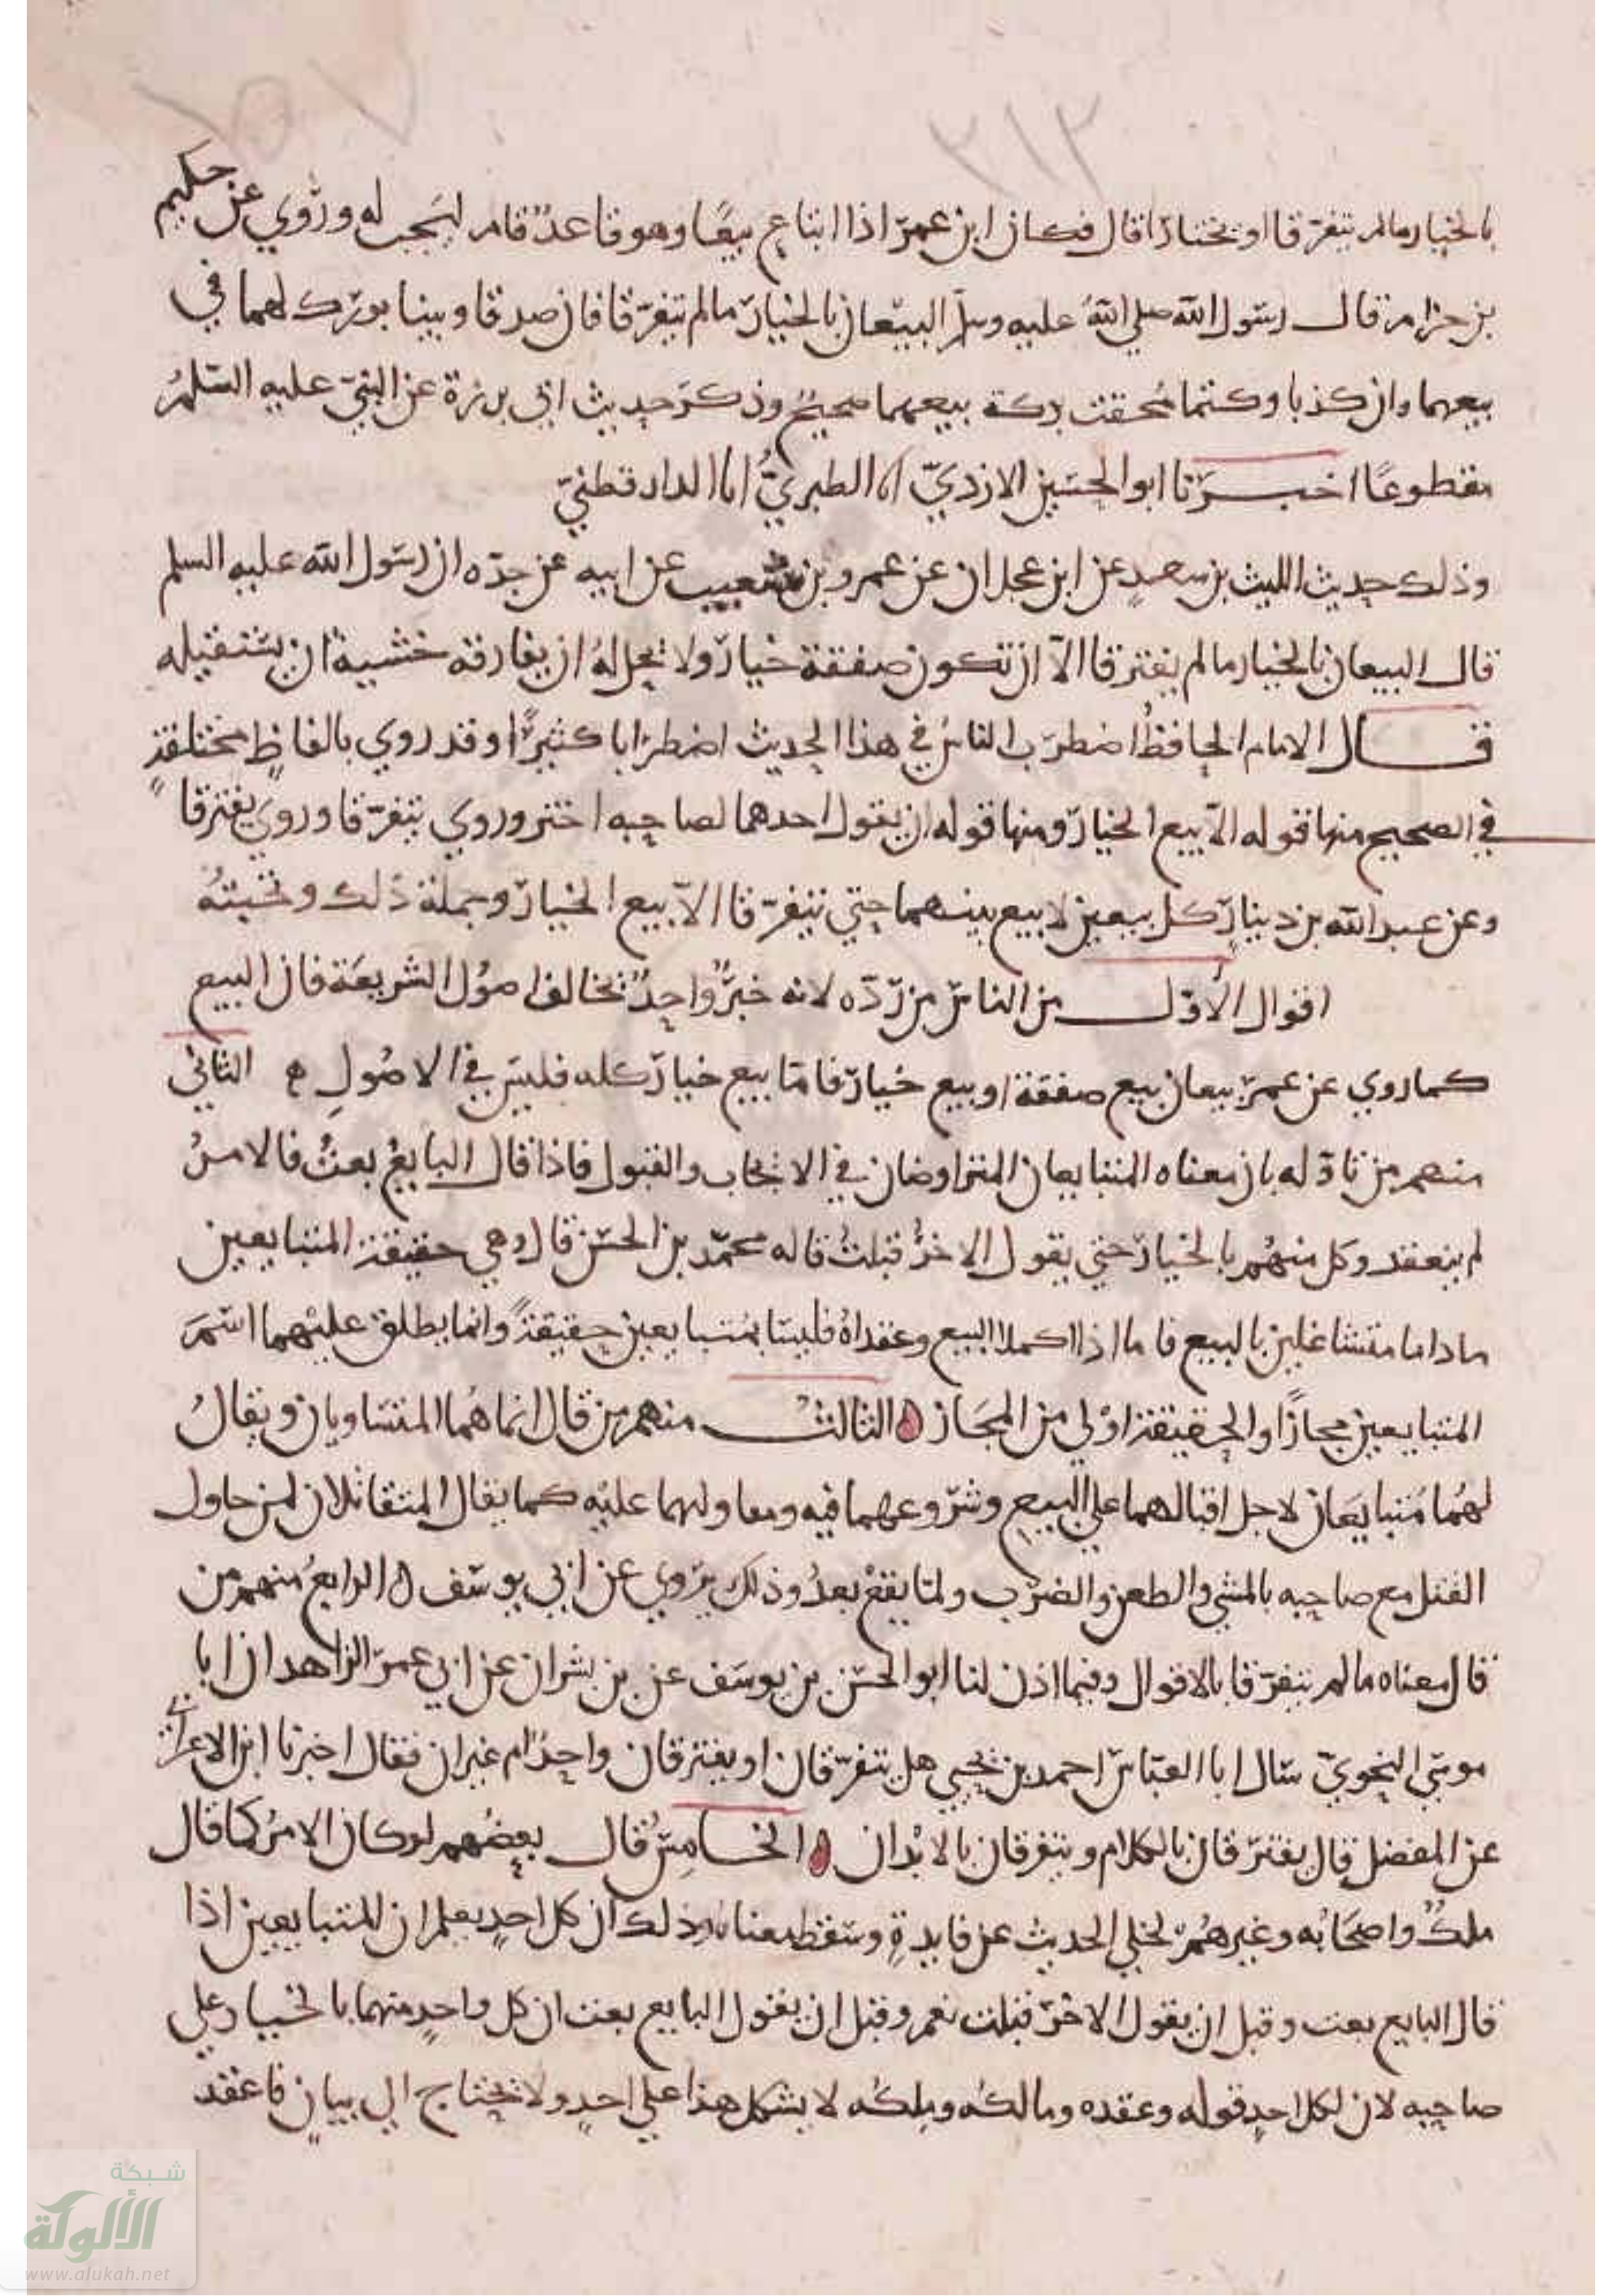 ٣١٢
بالخيار مالم يتفرقا او يختارا قال فكان ابن عمر اذا ابتاع بيعًا وهو قاعدٌ قام ليجب له وروي عن حكيم
بن حزام قال رسول الله صلى الله عليه وسلم البيعان بالخيار مالم يتفرقا فان صدقا وبينا بورك لهما في
بيعهما وان كذبا وكتما مُحقت بركة بيعهما صحيحٌ وذكر حديث ابي برزة عن النبيّ عليه السّلمُ
مقطوعًا اخبرنا ابو الحسين الازديّ انا الطبريُّ انا الدارقطنيّ
وذلك حديث الليث بن سعدٍ عن ابن عجلان عن عمرو بن شعيب عن ابيه عن جدّه ان رسول الله عليه السلم
قال البيعان بالخيار مالم يفترقا الّا ان تكون صفقة خيار ولا يحل لهُ ان يفارقه خشية ان يستقيله
قال الامام الحافظُ اضطرب الناسُ في هذا الحديث اضطرابا كثيرًا وقد روي بالفاظٍ مختلفةٍ
في الصحيح منها قوله الّا بيع الخيار ومنها قوله ان يقول احدهما لصاحبه اختر وروي يتفرّقا وروي يفترقا
وعن عبد الله بن دينارٍ كل بيعين لا بيع بينهما حتي يتفرّقا الّا بيع الخيار وجملة ذلك
اقوال الأوّل من الناس من ردّه لانه خبرٌ واحدٌ يخالف اصُول الشريعَة فان البيع
كما روي عن عمر بيعان بيع صفقة او بيع خيار فامّا بيع خيار كله فليس في الاصُولِ ه الثاني
منهم من تاوّله بان معناه المتبايعان المتراوضان في الايجاب والقبول فاذا قال البايعُ بعتُ فالامرُ
لم ينعقد وكل منهُم بالخيار حتي يقول الاخرُ قبلتُ قاله محمّد بن الحسن قال وهي حقيقة المتبايعين
ماداما متشاغلين بالبيع فاما اذا اكملا البيع وعقداهُ فليسا بمتبايعين حقيقةً وانما يطلق عليْهما اسمَ
المتبايعين مجازًا والحقيقة اوْلي من المجَاز ه الثالث منهم من قال انما هُما المتساويان ويقالُ
لهُما مُتبايعَان لاجل اقبالهما علي البيع وشروعهما فيه ومعاولهما عليْه كما يقال المتقاتلان لمن حاول
القتل مع صاحبه بالمشي والطعن والضرب ولمّا يقعْ بعدُ وذلك يروي عن ابي يوسف ه الرابعُ منهم من
قال معناه مالم يتفرّقا بالاقوال وفيما اذن لنا ابو الحسن بن يوسَف عن بن بشران عن ابي عمر الزاهد ان ابا
موسي النحويّ سَال ابا العبّاس احمد بن يحيي هل يتفرّقان او يفترقان واحدٌ ام غيران فقال اخبرنا ابن الاعرابي
عن المفضل قال يفترقان بالكلام ويتفرقان بالابْدان ه الخامسُ قال بعضُهم لو كان الامرُ كما قال
ملكٌ واصحَابُه وغيرهُم لخلي الحديث عن فايدةٍ وسقط معناه وذلك ان كل احدٍ يعلم ان المتبايعين اذا
قال البايع بعت وقبل ان يقول الاخر قبلت نعم وقبل ان يقول البايع بعت ان كل واحدٍ منهما بالخيار علي
صاحبه لان لكل احدٍ قوله وعقده ومالكُه وملكُه لا يشكل هذا علي احدٍ ولا يحتاج الي بيانٍ فاعقد
شبكة
الألوكة
www.alukah.net